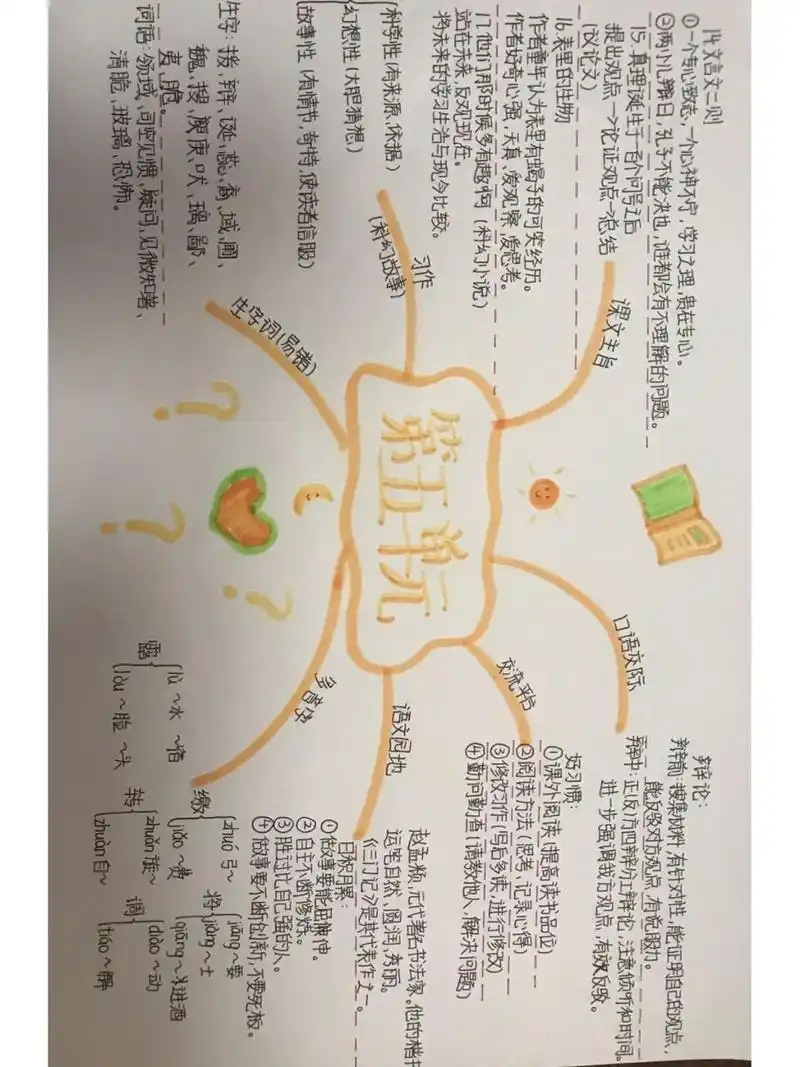 第五单元
课文主旨
14 文言文二则
①一个专心致志,一个心神不宁,学习之理,贵在专心。
②两小儿辩日,孔子不能决也,谁都会有不理解的问题。
15. 真理诞生于一百个问号之后
提出观点→论证观点→总结
(议论文)
16. 表里的生物
作者童年认为表里有蝎子的可笑经历。
作者好奇心强,天真,爱观察,爱思考。
17. 他们那时候多有趣啊(科幻小说)
站在未来,反观现在。
将未来的学习生活与现今比较。
习作
(科幻故事)
科学性(有来源、依据)
幻想性(大胆猜想)
故事性(有情节,奇特,使读者信服)
生字词(易错)
生字:援、辩、诞、域、
魏、搜、庚、吠、璃、鄙、
脆。
词语:领域、司空见惯、疑问、见微知著、
清脆、玻璃、恐怖。
口语交际
辩论:
辩前:搜集材料,有针对性,能证明自己的观点,
能反驳对方观点,有说服力。
辩中:正反方四辩分工辩论,注意倾听和时间。
进一步强调我方观点,有效反驳。
交流平台
好习惯:
①课外阅读(提高读书品位)
②阅读方法(思考、记录心得)
③修改习作(写后多读,进行修改)
④勤问勤查(请教他人,解决问题)
语文园地
赵孟頫,元代著名书法家。他的楷书
运笔自然、圆润、秀丽。
《三门记》是其代表作之一。
日积月累:
①做事要能屈能伸。
②自主不断修炼。
③胜过比自己强的人。
④做事要不断创新,不要死板。
多音字
露
lù ~水 ~宿
lòu ~脸 ~头
转
zhuǎn 旋~
zhuàn 自~
缴
zhuó 弓~
jiǎo ~费
将
jiāng ~要
jiàng ~士
qiāng ~进酒
调
diào ~动
tiáo ~解